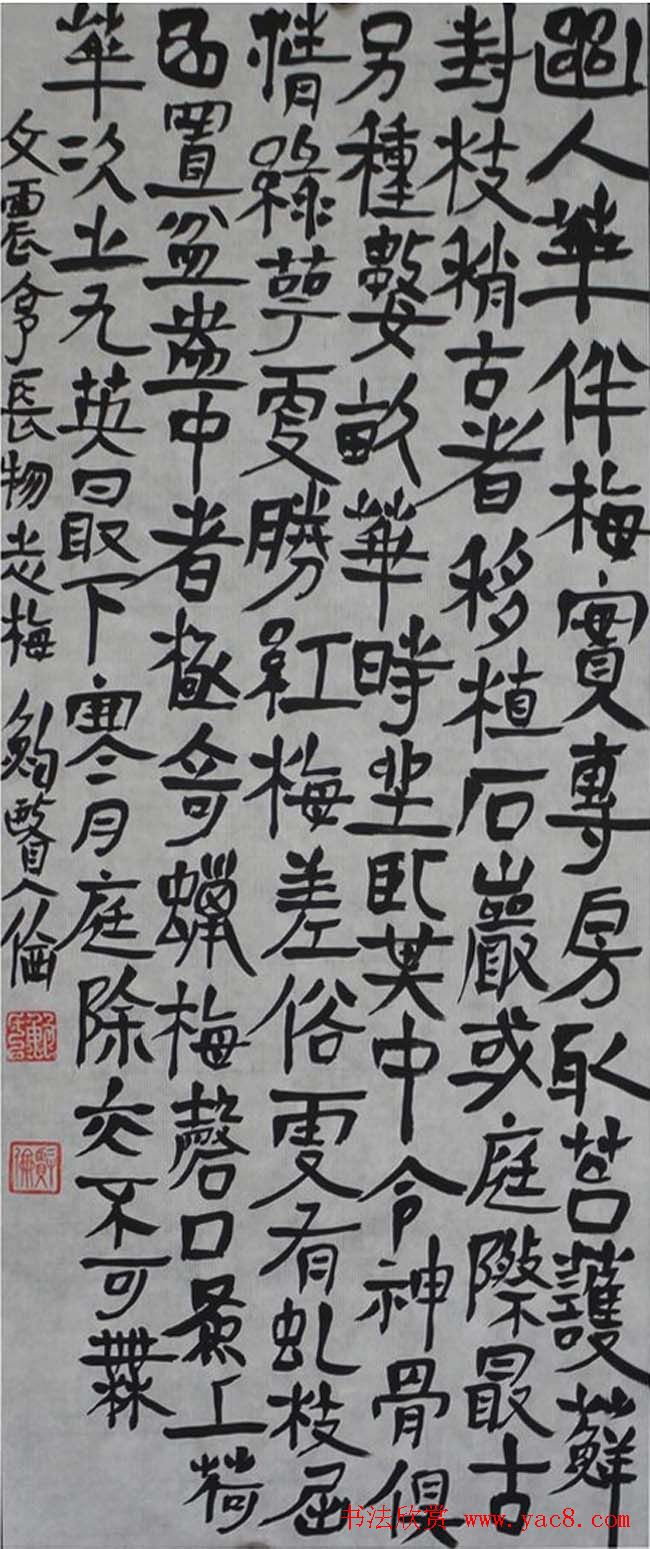 幽人華伴梅實專房取苔護蘚
封枝稍古者移植石巖或庭際最古
另種數畝華時坐臥其中令神骨俱
清綠萼更勝紅梅差俗更有虬枝屈
曲置盆盎中者極奇蠟梅磬口為上荷
華次之九英最下寒月庭除亦不可無
文震亨長物志梅 鮑賢倫
賢倫
书法欣赏 www.yac8.com